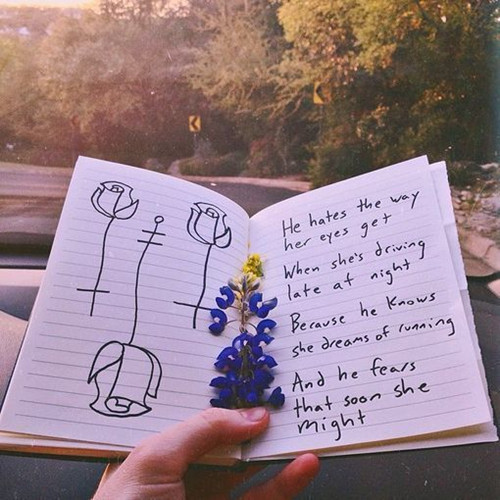 He hates the way
her eyes get
When she's driving
late at night
Because he knows
she dreams of running
And he fears
that soon she
might